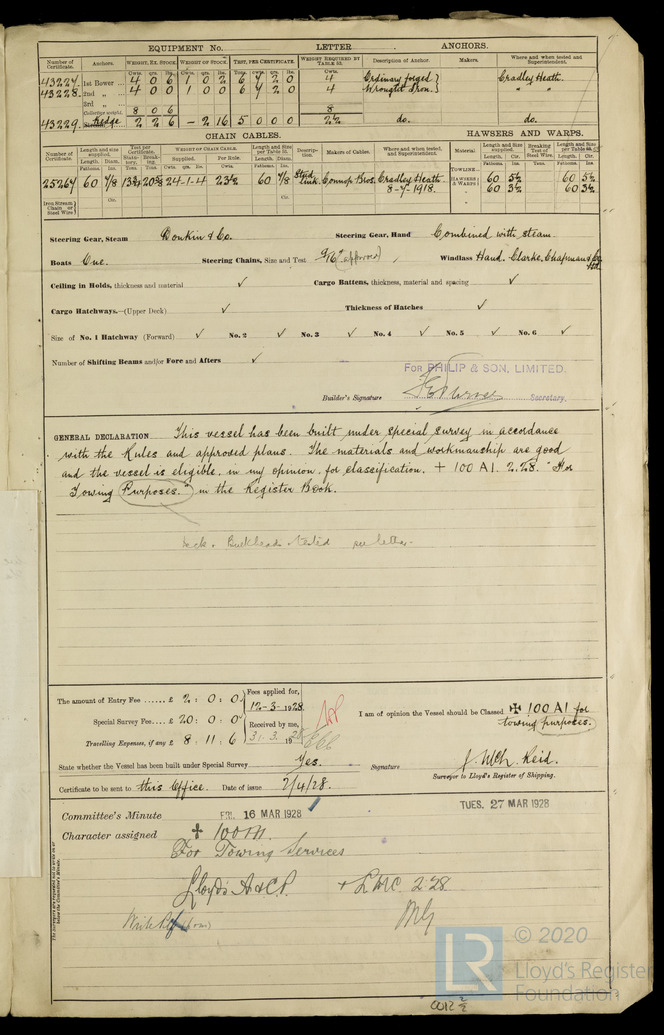 EQUIPMENT No. LETTER ANCHORS.
Number of Certificate. Anchors. WEIGHT, EX. STOCK WEIGHT OF STOCK. TEST, PER CERTIFICATE. WEIGHT REQUIRED BY TABLE 53. Description of Anchor. Makers. Where and when tested and Superintendent.
43227. 1st Bower 4 0 6 1 0 2 6 4 2 0 4 Ordinary forged Cradley Heath.
43228. 2nd „ 4 0 0 1 0 0 6 4 2 0 4 Wrought Iron. „ „
3rd „
Collective weight 8 0 6 8
43229. Kedge 2 2 6 - 2 16 5 0 0 0 2½ do. do.
CHAIN CABLES. HAWSERS AND WARPS.
Number of Certificate. Length and size supplied. Test per Certificate. WEIGHT OF CHAIN CABLE. Length and Size per Table 53. Description. Makers of Cables. Where and when tested, and Superintendent. Material Length and Size supplied. Breaking Test of Steel Wire. Length and Size per Table
Length. Diam. Statutory. Breaking. Supplied. Per Rule. Length. Diam.
25264 60 7/8 24-1-4 23½ 60 7/8 Stud link. Connop Bros. Cradley Heath. TOWLINE HAWSERS & WARPS 60 5½ 60 5½
8-4-1918. 60 3½ 60 3½
Iron Stream Chain or Steel Wire
Steering Gear, Steam Donkin & Co. Steering Gear, Hand Combined with steam
Boats One. Steering Chains, Size and Test 9/16" (approved) Windlass Hand. Clarke, Chapman & Co Ltd
Ceiling in Holds, thickness and material ✓ Cargo Battens, thickness, material and spacing ✓
Cargo Hatchways.—(Upper Deck) ✓ Thickness of Hatches ✓
Size of No. 1 Hatchway (Forward) ✓ No. 2 ✓ No. 3 ✓ No. 4 ✓ No. 5 ✓ No. 6 ✓
Number of Shifting Beams and/or Fore and Afters ✓
FOR PHILIP & SON, LIMITED.
Builder's Signature Secretary.
GENERAL DECLARATION This vessel has been built under special survey in accordance
with the Rules and approved plans. The materials and workmanship are good
and the vessel is eligible, in my opinion, for classification. + 100 A1. 2.28. "For
Towing Purposes." in the Register Book.
Bulkheads tested see letter.
The amount of Entry Fee ...... £ 2 : 0 : 0 Fees applied for,
12-3-1928.
Special Survey Fee.... £ 20 : 0 : 0 Received by me,
Travelling Expenses, if any £ 8 : 11 : 6 31. 3. 1928
I am of opinion the Vessel should be Classed ✠ 100 A1 for
towing purposes.
State whether the Vessel has been built under Special Survey Yes.
Signature J. McK. Reid.
Surveyor to Lloyd's Register of Shipping.
Certificate to be sent to this Office. Date of issue 2/4/28.
Committee's Minute FRI. 16 MAR 1928 TUES. 27 MAR 1928
Character assigned ✠ 100A1.
For Towing Services
Lloyd's A & C.P. + LMC 2.28
The Surveyors are requested not to write on or below the Committee's Minute.
LR © 2020
Lloyd's Register
Foundation